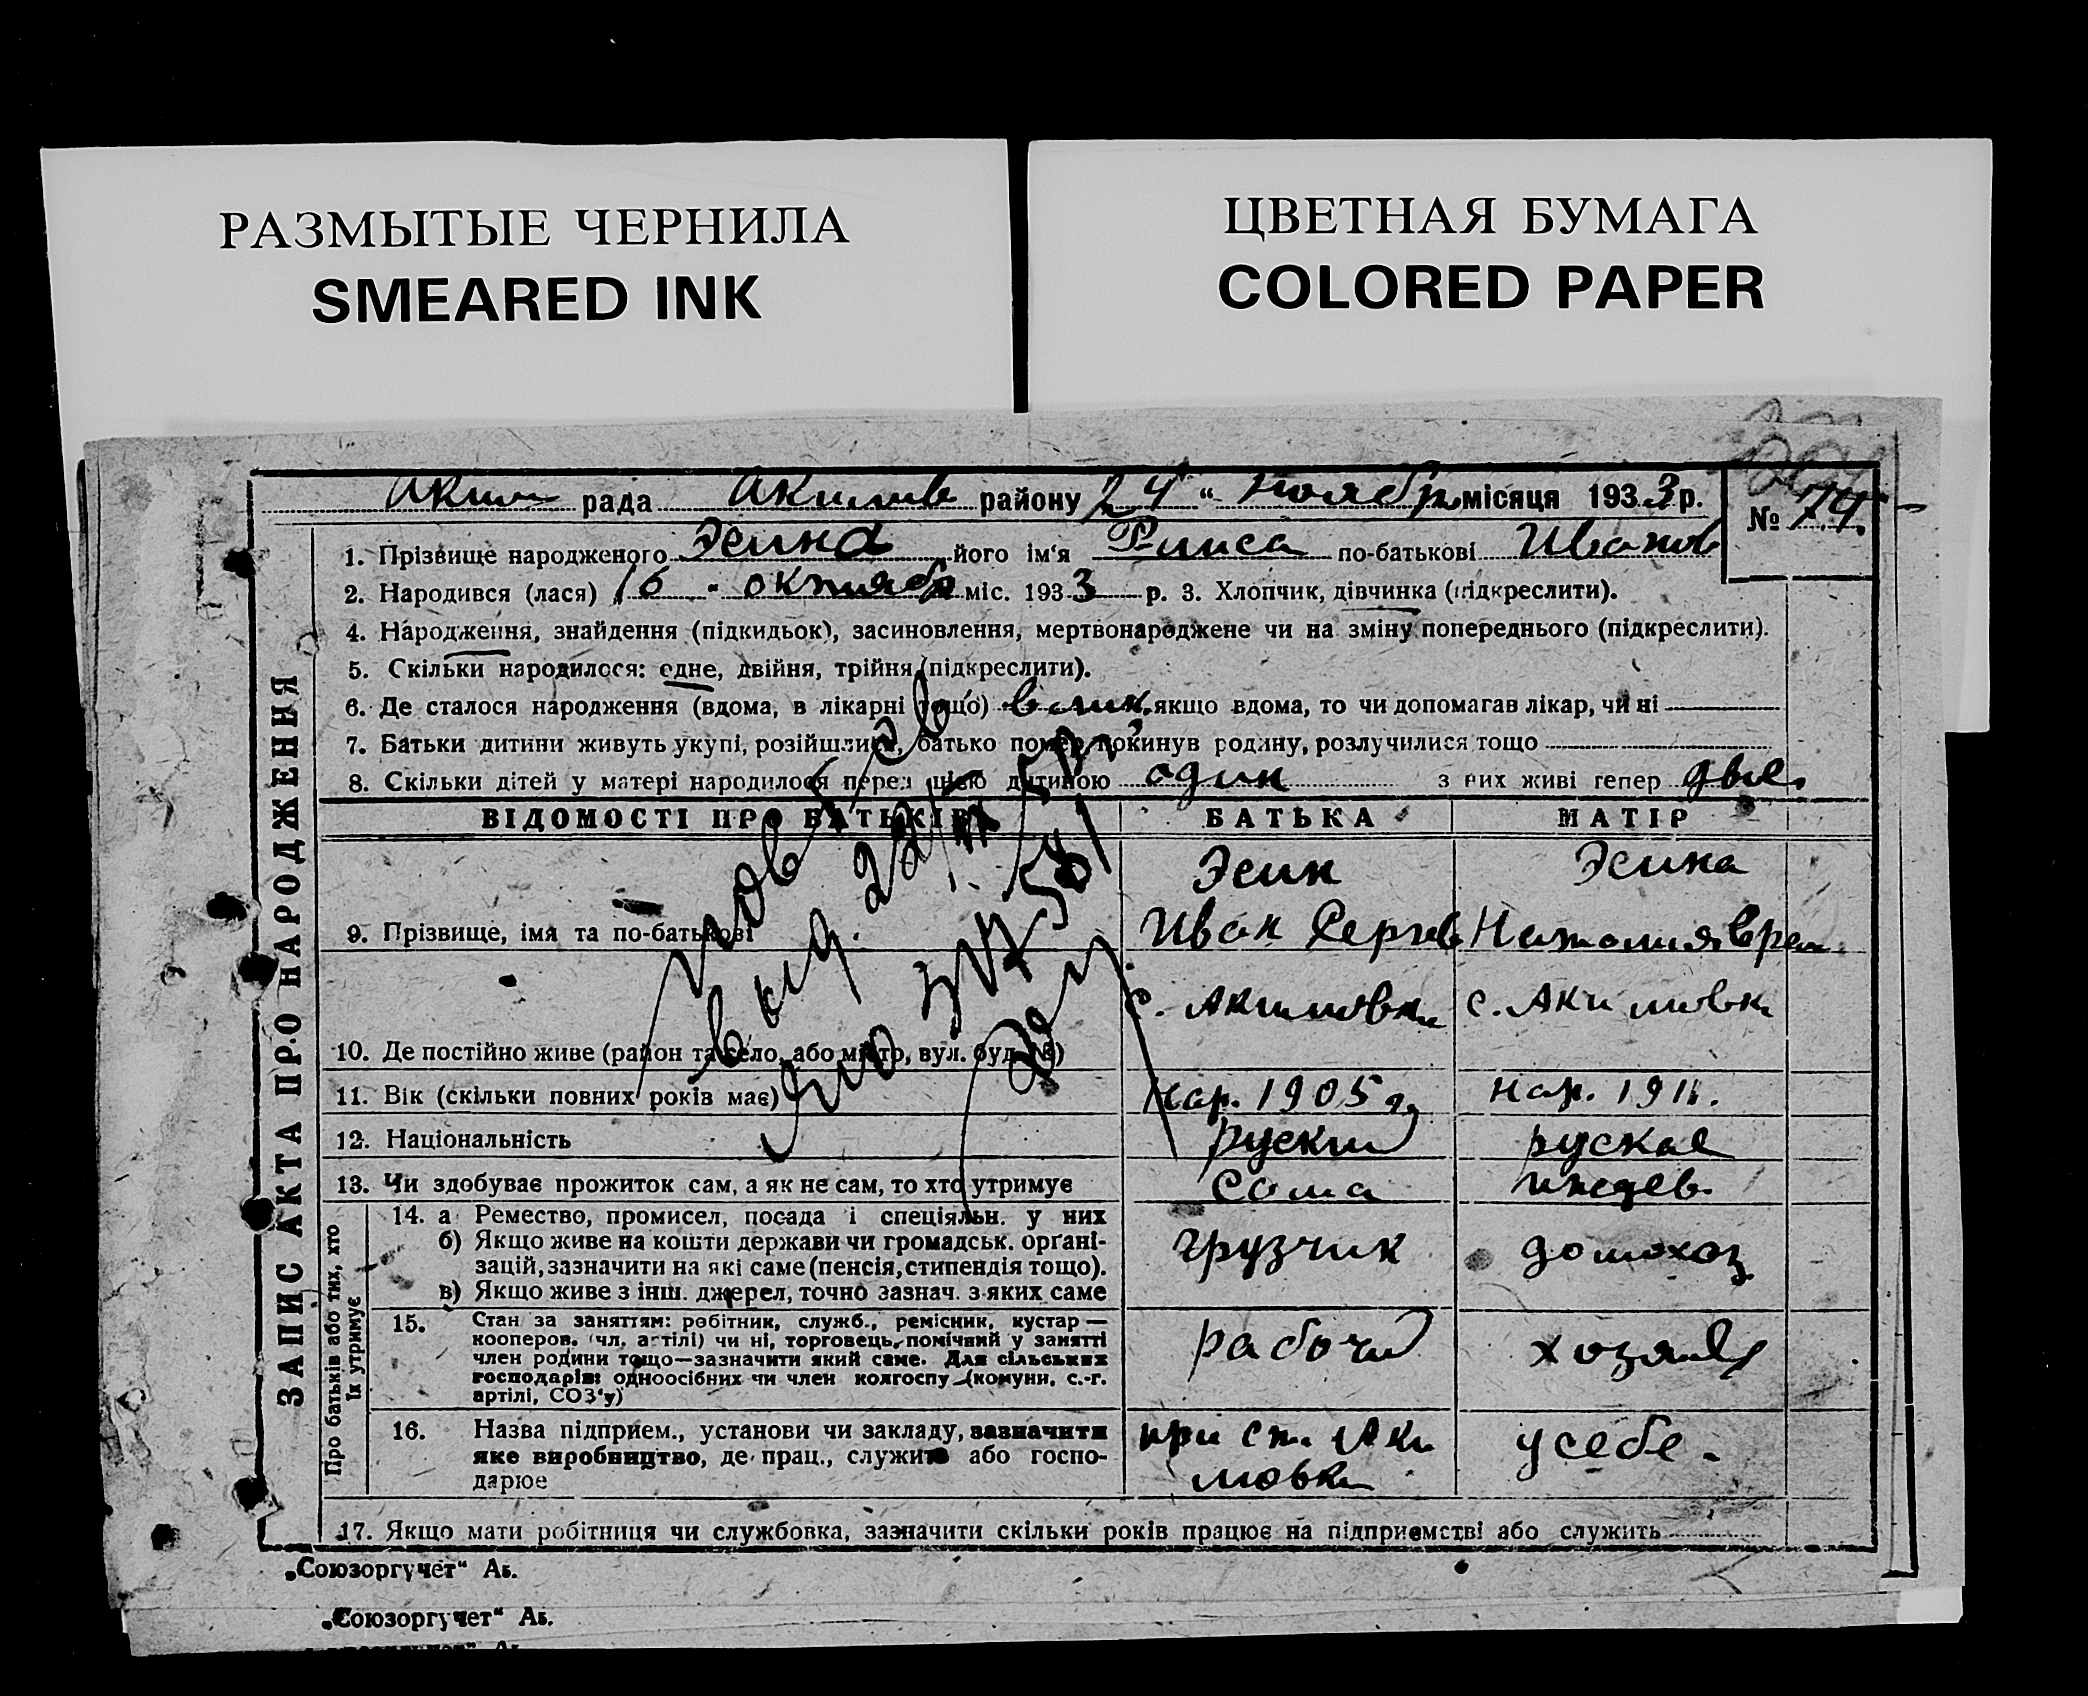 РАЗМЫТЫЕ ЧЕРНИЛА
SMEARED INK
ЦВЕТНАЯ БУМАГА
COLORED PAPER
рада Акимов району 24 “ ноябр місяця 1933 р.
№ 74.
1. Прізвище народженого Эсина його ім‘я по-батькові Иванов
2. Народився (лася) 16 " октиябр міс. 1933 р. 3. Хлопчик, дівчинка (підкреслити).
4. Народження, знайдення (підкидьок), засиновлення, мертвонароджене чи на зміну попереднього (підкреслити).
5. Скільки народилося: одне, двійня, трійня (підкреслити).
6. Де сталося народження (вдома, в лікарні тощо) якщо вдома, то чи допомагав лікар, чи ні
7. Батьки дитини живуть укупі, розійшлися, батько помер, покинув родину, розлучилися тощо
8. Скільки дітей у матері народилося перед цією дитиною один з них живі тепер двое.
ВІДОМОСТІ ПРО БАТЬКІВ БАТЬКА МАТІР
Эсин Эсина
9. Прізвище, імя та по-батькові Иван Сергев Наталия
с. Акимовки с. Акимовк
10. Де постійно живе (район та село, або місто, вул. буд. №)
11. Вік (скільки повних років має) нар. 1905 г. нар. 1911.
12. Національність руский руская
13. Чи здобуває прожиток сам, а як не сам, то хто утримує Сама иждев.
14. а Ремество, промисел, посада і спеціяльн. у них
б) Якщо живе на кошти держави чи громадськ. органі-
зацій, зазначити на які саме (пенсія, стипендія тощо).
в) Якщо живе з інш. джерел, точно зазнач. з яких саме
грузчик домохоз
15. Стан за заняттям: робітник, служб., ремісник, кустар —
кооперов. (чл. артілі) чи ні, торговець, помічний у занятті
член родини тощо—зазначити який саме. Для сільських
господарів: одноосібних чи член колгоспу (комуни, с.-г.
артілі, СОЗ‘у)
рабочий
16. Назва підприєм., установи чи закладу, зазначити
яке виробництво, де прац., служить або госпо-
дарює
при ст. Аки
мовки
у себе.
17. Якщо мати робітниця чи службовка, зазначити скільки років працює на підприємстві або служить
ЗАПИС АКТА ПРО НАРОДЖЕННЯ
Про батьків або тих, хто
їх утримує
„Союзоргучет“ Аб.
„Союзоргучет“ Аб.